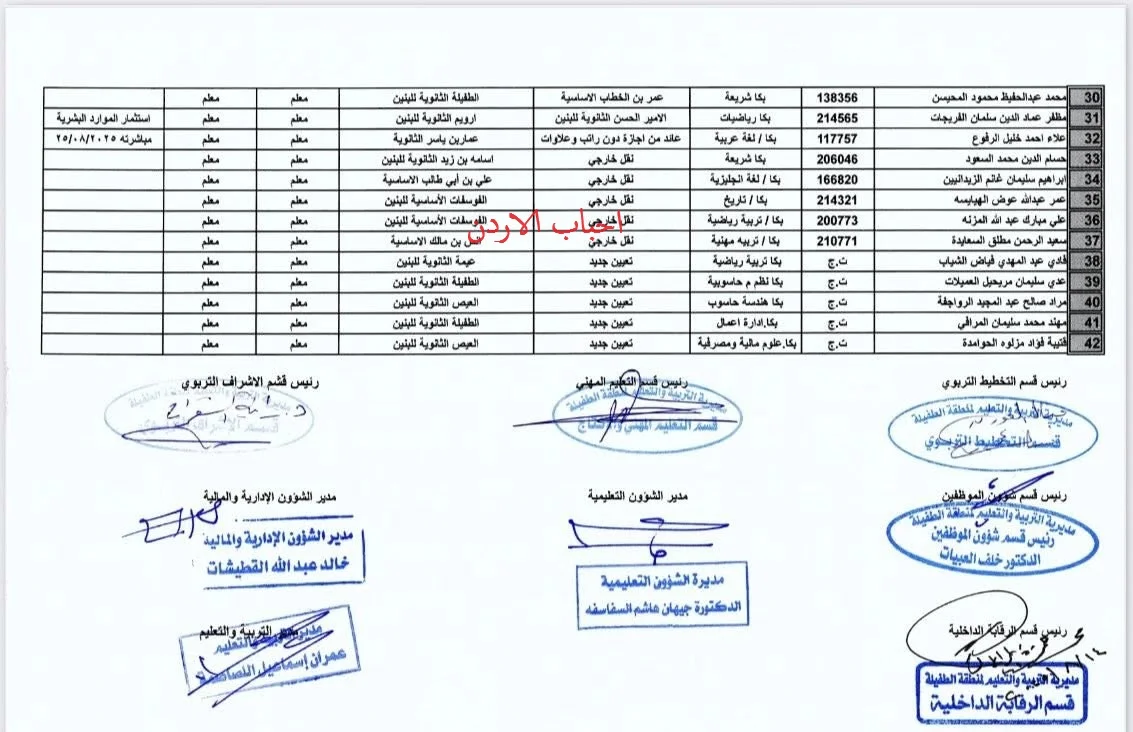 30 محمد عبدالحفيظ محمود المحيسن 138356 بكا شريعة عمر بن الخطاب الاساسية الطفيلة الثانوية للبنين معلم معلم
31 مظفر عماد الدين سلمان الفريجات 214565 بكا رياضيات الامير الحسن الثانوية للبنين ارويم الثانوية للبنين معلم معلم استثمار الموارد البشرية
32 علاء احمد خليل الرفوع 117757 بكا / لغة عربية عائد من اجازة دون راتب وعلاوات عمار بن ياسر الثانوية معلم معلم مباشرته ٢٥/٠٨/٢٠٢٥
33 حسام الدين محمد السعود 206046 بكا شريعة نقل خارجي اسامه بن زيد الثانوية للبنين معلم معلم
34 ابراهيم سليمان غانم الزيدانيين 166820 بكا / لغة انجليزية نقل خارجي علي بن أبي طالب الاساسية معلم معلم
35 عمر عبدالله عوض الهبايسه 214321 بكا / تاريخ نقل خارجي الفوسفات الأساسية للبنين معلم معلم
36 علي مبارك عبد الله المزنه 200773 بكا / تربية رياضية نقل خارجي الفوسفات الأساسية للبنين معلم معلم
احباب الاردن
37 سعيد الرحمن مطلق السعايدة 210771 بكا / تربيه مهنية نقل خارجي بن مالك الاساسية معلم معلم
38 فادي عبد المهدي فياض الشباب ت.ج بكا تربية رياضية تعيين جديد عيمة الثانوية للبنين معلم معلم
39 عدي سليمان مريحيل العميلات ت.ج بكا نظم م حاسوبية تعيين جديد الطفيلة الثانوية للبنين معلم معلم
40 مراد صالح عبد المجيد الرواجفة ت.ج بكا هندسة حاسوب تعيين جديد العيص الثانوية للبنين معلم معلم
41 مهند محمد سليمان المرافي ت.ج بكا.ادارة اعمال تعيين جديد الطفيلة الثانوية للبنين معلم معلم
42 قتيبة فؤاد مزلوه الحوامدة ت.ج بكا.علوم مالية ومصرفية تعيين جديد العيص الثانوية للبنين معلم معلم
رئيس قسم التخطيط التربوي رئيس قسم التعليم المهني رئيس قسم الاشراف التربوي
مديرية التربية والتعليم لمنطقة الطفيلة
قسم التخطيط التربوي
مديرية التربية والتعليم لمنطقة الطفيلة
قسم التعليم المهني والانتاج
مديرية التربية والتعليم لمنطقة الطفيلة
قسم الاشراف التربوي
رئيس قسم شؤون الموظفين مدير الشؤون التعليمية مدير الشؤون الإدارية والمالية
مديرية التربية والتعليم لمنطقة الطفيلة
رئيس قسم شؤون الموظفين
الدكتور خلف العبيات
مديرة الشؤون التعليمية
الدكتورة جيهان هاشم السفاسفه
مدير الشؤون الإدارية والمالية
خالد عبد الله القطيشات
رئيس قسم الرقابة الداخلية مدير التربية والتعليم
مديرية التربية والتعليم لمنطقة الطفيلة
قسم الرقابة الداخلية
مدير التربية والتعليم
عمران إسماعيل اللصاصمة